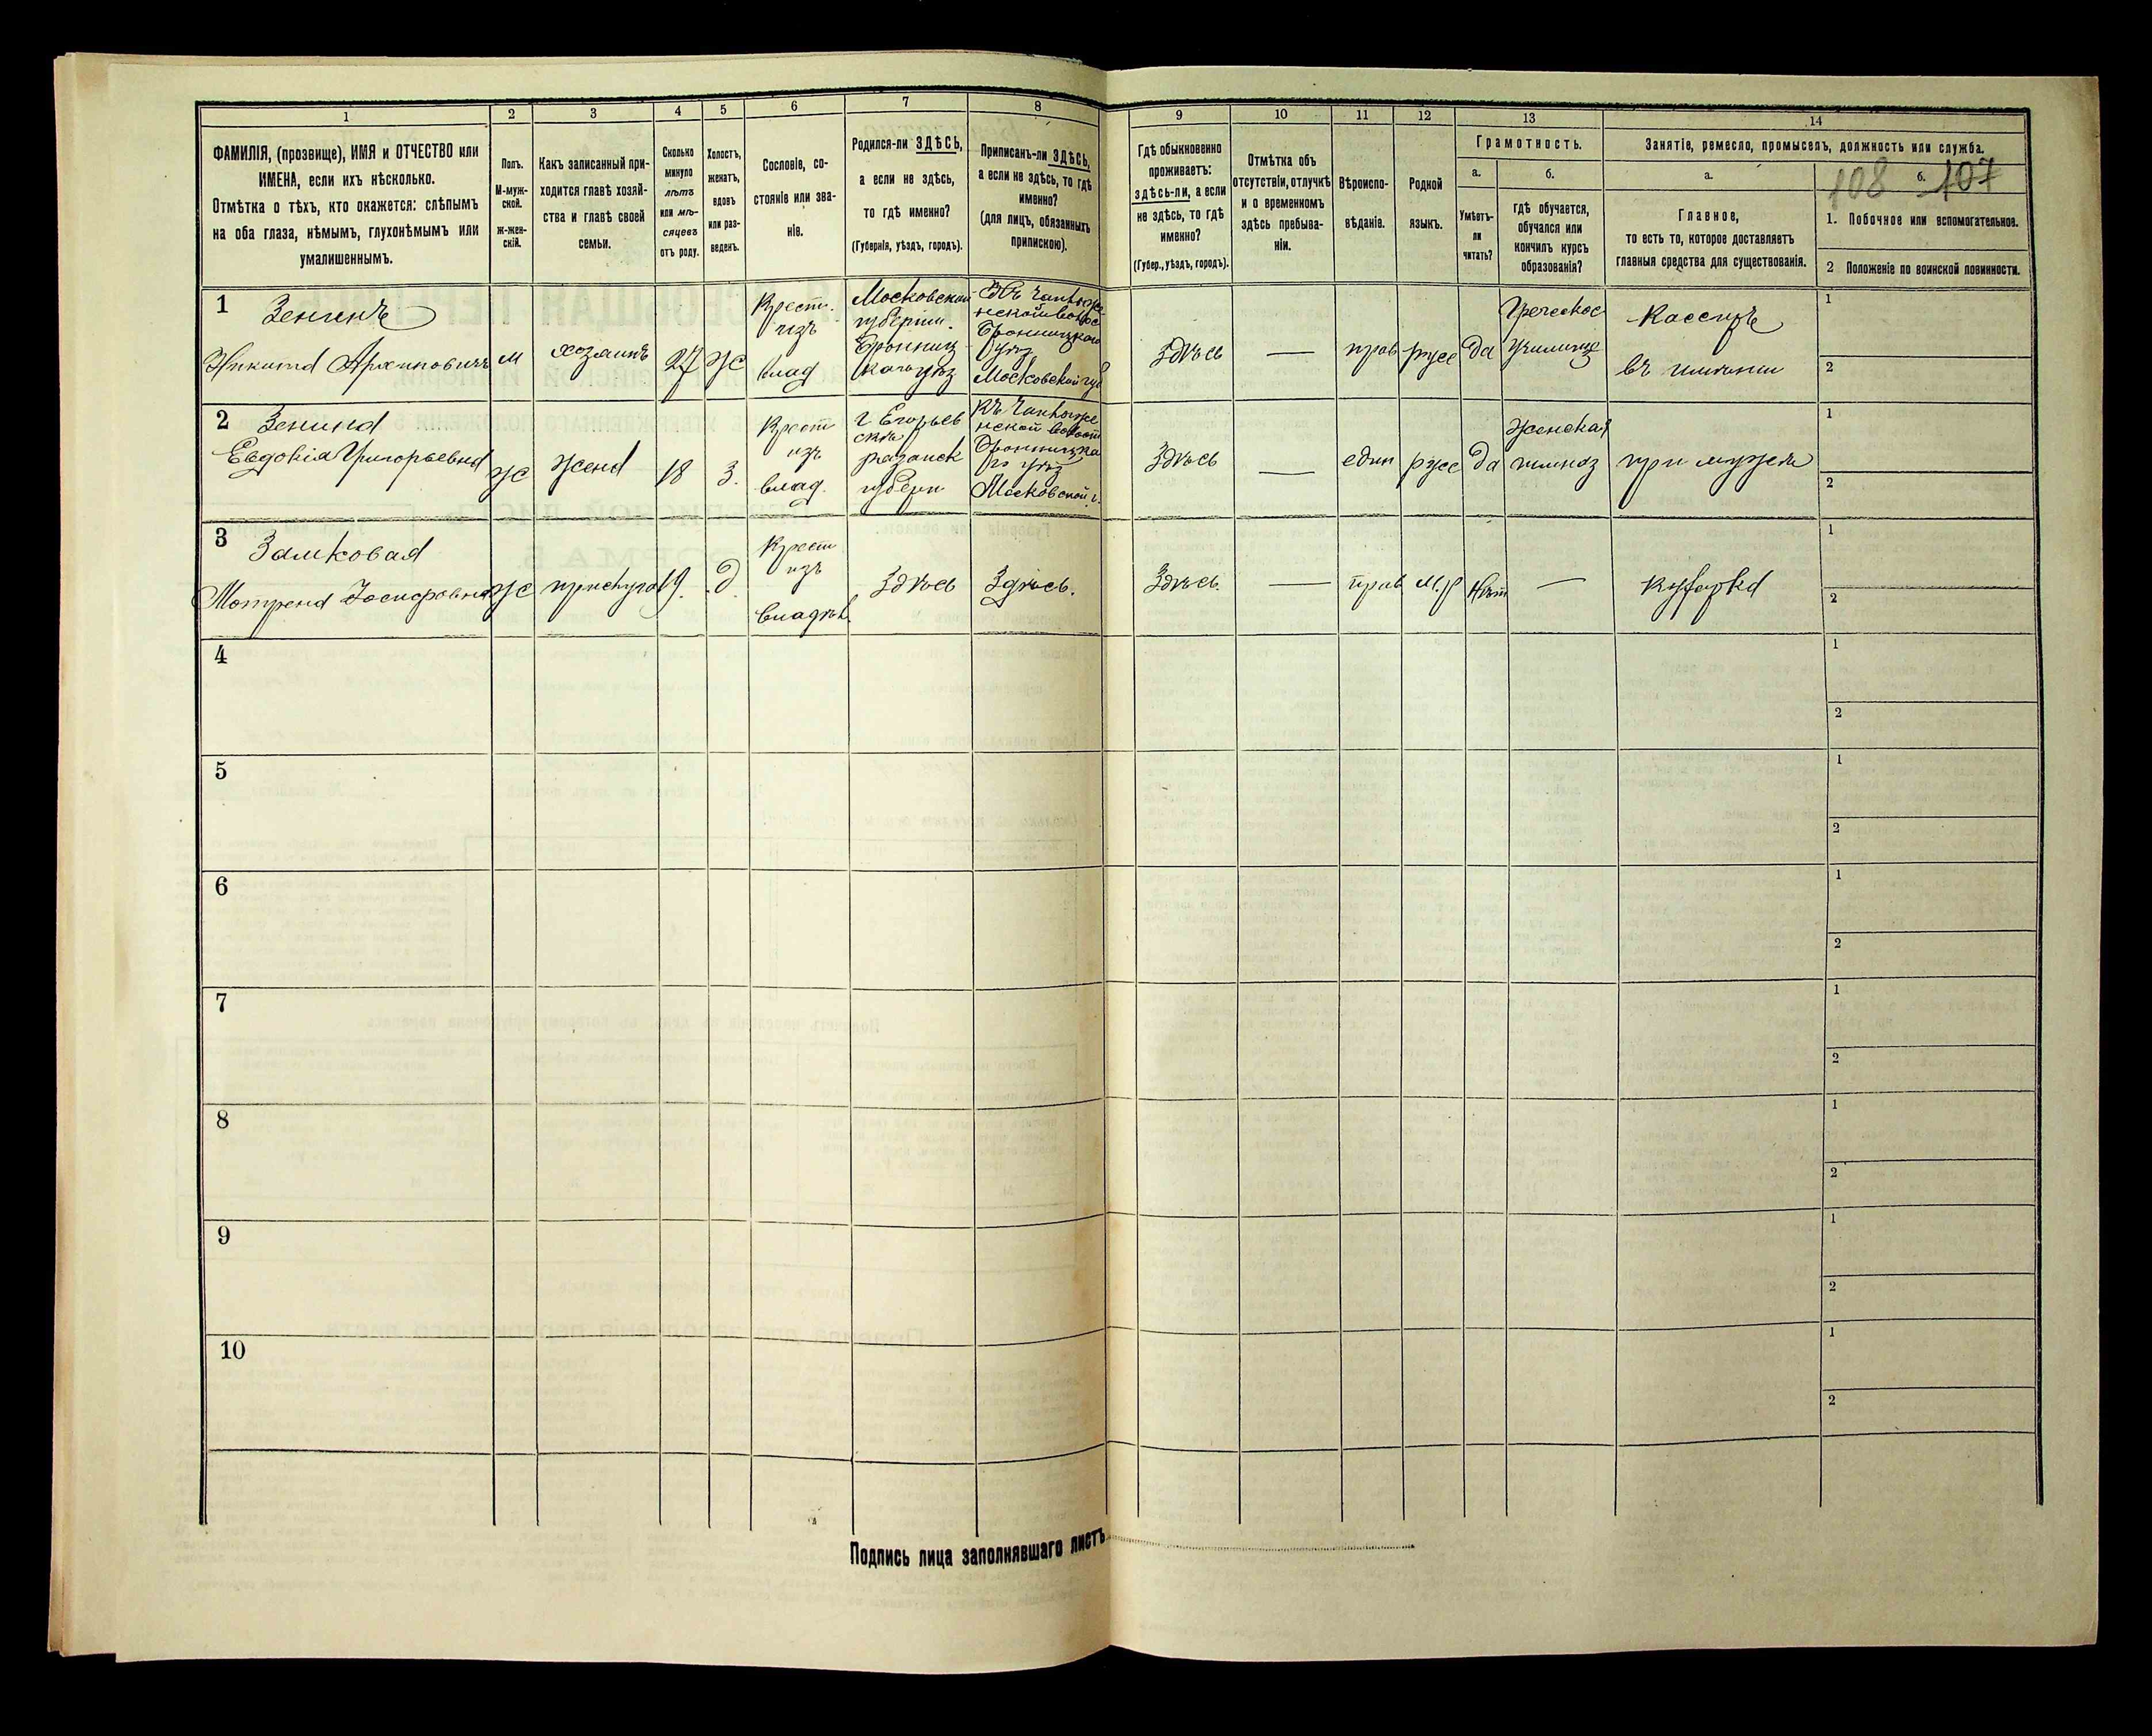 1
2
3
4
5
6
7
8
9
10
11
12
13
14
ФАМИЛІЯ, (прозвище), ИМЯ и ОТЧЕСТВО или
ИМЕНА, если ихъ нѣсколько.
Отмѣтка о тѣхъ, кто окажется: слѣпымъ
на оба глаза, нѣмымъ, глухонѣмымъ или
умалишеннымъ.
Полъ.
М-муж-
ской.
Ж-жен-
скій.
Какъ записанный при-
ходится главѣ хозяй-
ства и главѣ своей
семьи.
Сколько
минуло
лѣтъ
или мѣ-
сяцевъ
отъ роду.
Холостъ,
женатъ,
вдовъ
или раз-
веденъ.
Сословіе, со-
стояніе или зва-
ніе.
Родился-ли ЗДѢСЬ,
а если не здѣсь,
то гдѣ именно?
(Губернія, уѣздъ, городъ).
Приписанъ-ли ЗДѢСЬ,
а если не здѣсь, то гдѣ
именно?
(для лицъ, обязанныхъ
припискою).
Гдѣ обыкновенно
проживаетъ:
ЗДѢСЬ-ли, а если
не здѣсь, то гдѣ
именно?
(Губер., уѣздъ, городъ).
Отмѣтка объ
отсутствіи, отлучкѣ
и о временномъ
здѣсь пребыва-
ніи.
Вѣроиспо-
вѣданіе.
Родной
языкъ.
Грамотность.
а.
Умѣетъ-
ли
читать?
б.
гдѣ обучается,
обучался или
кончилъ курсъ
образованія?
Занятіе, ремесло, промыселъ, должность или служба.
а.
Главное,
то есть то, которое доставляетъ
главныя средства для существованія.
108 107
б.
1. Побочное или вспомогательное.
2 Положеніе по воинской повинности.
1
Зенинъ
Никита Архиповичъ
м
хозяинъ
27
ж
Крест.
изъ
влад
Московской
губерніи.
Бронниц
каго уѣз
Бронницкаго
уѣз
Московской губ
Здѣсь
—
прав
русс
да
училище
Кассиръ
въ имѣніи
1
2
2
Зенина
Евдокія Григорьевна
ж
жена
18
з.
Крест
изъ
влад.
г Егорьев
скъ
рязанск
губерн
Бронницка
го уѣз
Московской г.
Здѣсь
—
един
русс
да
Женская
гимназ
при мужѣ
1
2
3
Замковая
Матрена Іосифовна
ж
прислуга
19.
д.
Крест
изъ
владѣл.
Здѣсь
Здѣсь.
Здѣсь.
—
прав
м.р
Нѣт
—
Кухарка
1
2
4
1
2
5
1
2
6
1
2
7
1
2
8
1
2
9
1
2
10
1
2
Подпись лица заполнявшаго листъ